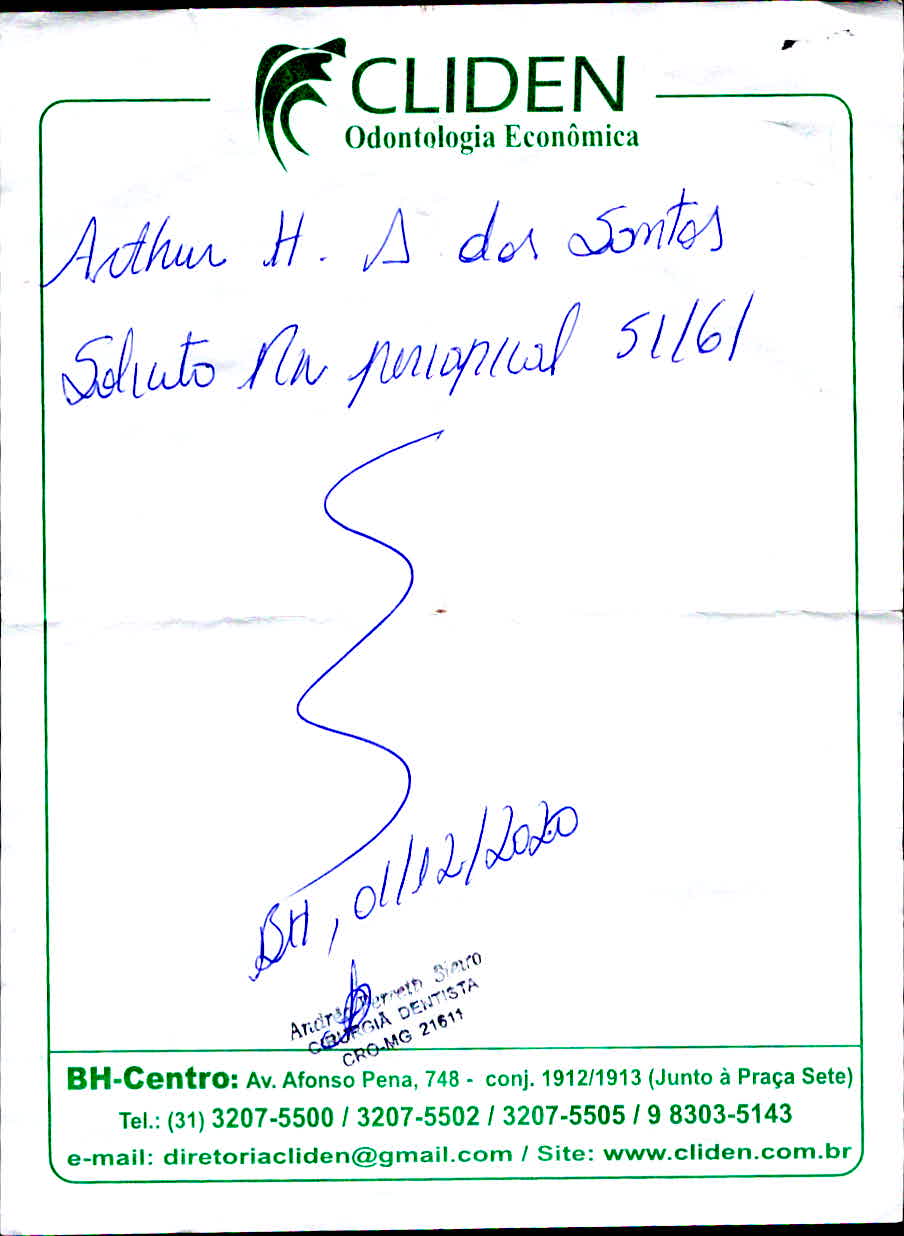 CLIDEN
Odontologia Econômica
Arthur H. A dos Santos
Solicito Rx periapical 51/61
BH, 01/12/2020
CIRURGIÃ DENTISTA
CRO-MG 21611
BH-Centro: Av. Afonso Pena, 748 - conj. 1912/1913 (Junto à Praça Sete)
Tel.: (31) 3207-5500 / 3207-5502 / 3207-5505 / 9 8303-5143
e-mail: diretoriacliden@gmail.com / Site: www.cliden.com.br